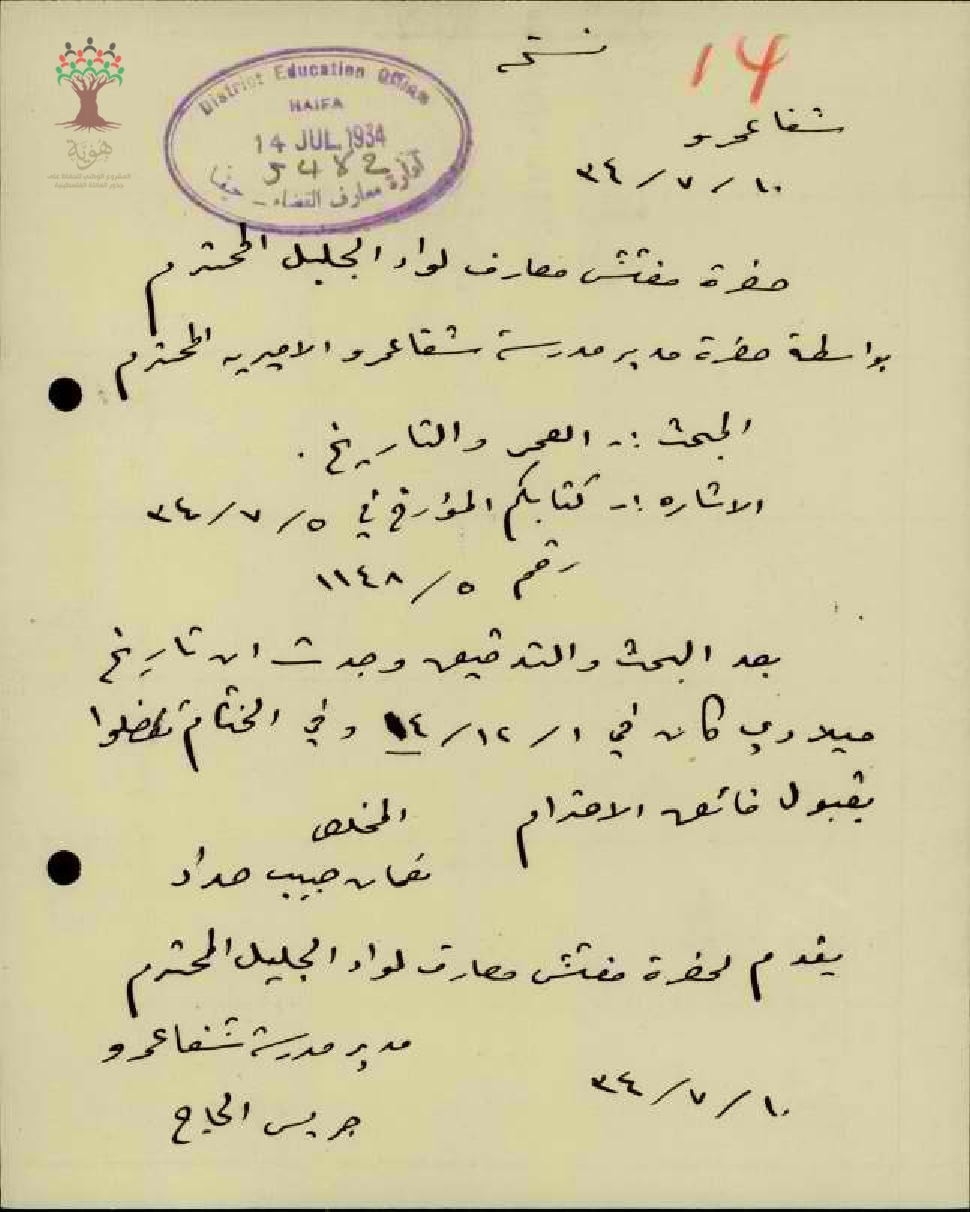 نسخة
14
شفاعمرو
١٠/٧/٣٤
District Education Office
HAIFA
14 JUL 1934
5482
ادارة معارف القضاء - حيفا
هوية
حضرة مفتش معارف لواء الجليل المحترم
بواسطة حضرة مدير مدرسة شفاعمرو الاميريه المحترم
المبحث :- العمر والتاريخ .
الاشاره :- كتابكم المؤرخ في ٥/٧/٣٤
رقم ٥/١١٤٨
بعد البحث والتدقيق وجدت ان تاريخ
ميلادي كان في ١/١٢/١٤ وفي الختام تفضلوا
بقبول فائق الاحترام
المخلص
نعمان حبيب حداد
يقدم لحضرة مفتش معارف لواء الجليل المحترم
مدير مدرسة شفاعمرو
١٠/٧/٣٤
جريس الحاج